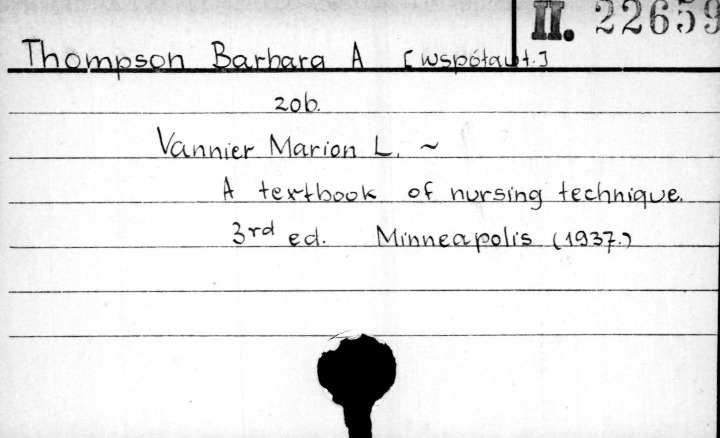 II. 22659
Thompson Barbara A [współaut.]
zob.
Vannier Marion L. ~
A textbook of nursing technique.
3rd ed. Minneapolis (1937.)